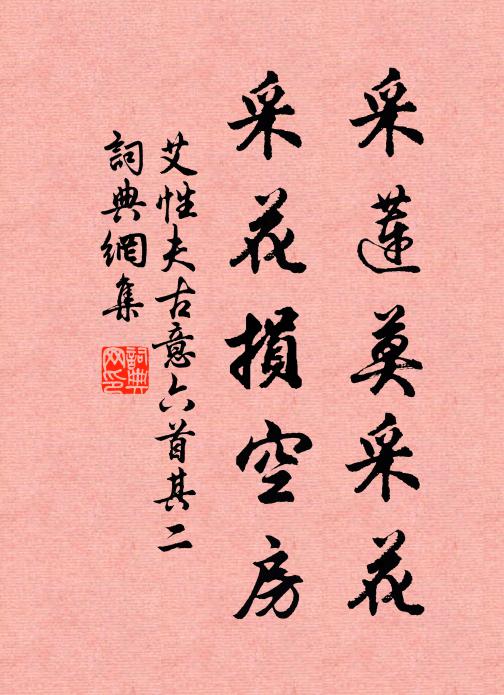 采蓮莫采花
采花損空房
艾性夫古意六首其二
詞典網集
詞典網印